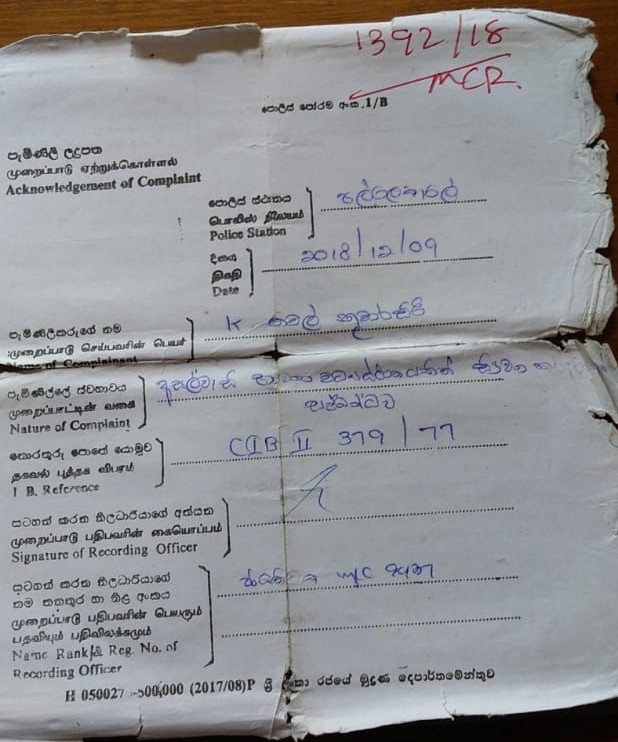 1392/18
MCR.
පොලිස් පෝරම අංක.1/B
පැමිණිලි ලදුපත
முறைப்பாடு ஏற்றுக்கொள்ளல்
Acknowledgement of Complaint
පොලිස් ස්ථානය
பொலிஸ் நிலையம்
Police Station
පල්ලෙකැලේ
දිනය
திகதி
Date
2018/12/09
පැමිණිලිකරුගේ නම
முறைப்பாடு செய்பவரின் பெயர்
Name of Complainant
K වේල් කුමාරසිරි
පැමිණිල්ලේ ස්වභාවය
முறைப்பாட்டின் வகை
Nature of Complaint
අසල්වැසි
සම්බන්ධව
තොරතුරු පොතේ යොමුව
தகவல் புத்தக விபரம்
I B. Reference
CIB II 379/77
සටහන් කරන නිලධාරියාගේ අත්සන
முறைப்பாடு பதிபவரின் கையொப்பம்
Signature of Recording Officer
සටහන් කරන නිලධාරියාගේ
නම තනතුර හා නිල අංකය
முறைப்பாடு பதிபவரின் பெயரும்
பதவியும் பதிவிலக்கமும்
Name Rank & Reg. No. of
Recording Officer
W/PC
H 050027 -500,000 (2017/08)P ශ්‍රී ලංකා රජයේ මුද්‍රණ දෙපාර්තමේන්තුව